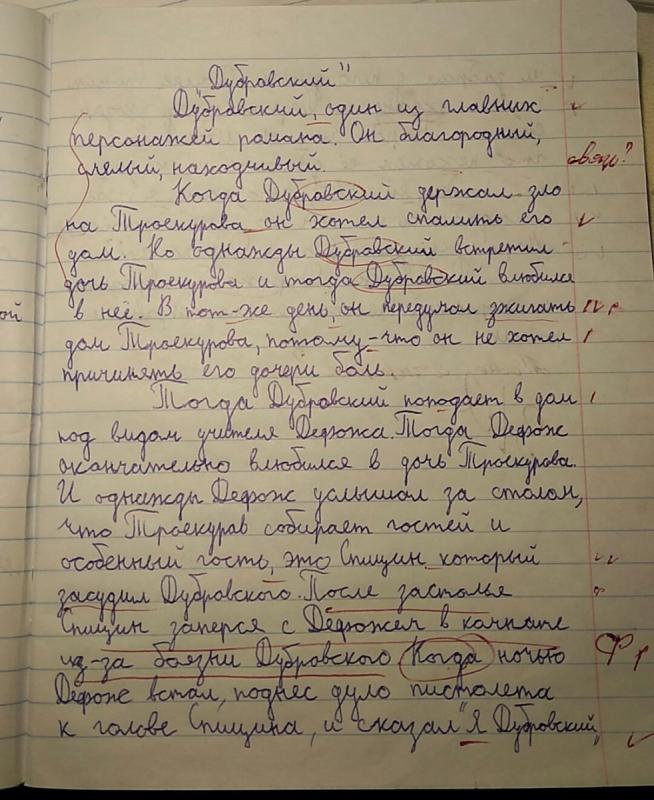 "Дубровский"
Дубровский, один из главных
персонажей романа. Он благородный,
смелый, находчивый.
связь?
Когда Дубровский держал зло
на Троекурова он хотел спалить его
дом. Но однажды Дубровский встретил
дочь Троекурова и тогда Дубровский влюбился
в неё. В тот-же день, он передумал зжигать
дом Троекурова, потому-что он не хотел
причинять его дочери боль.
Тогда Дубровский поподает в дом
под видом учителя Дефожа. Тогда Дефож
оканчательно влюбился в дочь Троекурова.
И однажды Дефож услышал за столом,
что Троекурав собирает гостей и
особенный гость, это Спицин который
засудил Дубровского. После застолье
Спицин заперся с Дефожем в комнате
из-за боязни Дубровского Когда ночью
Дефож встал, поднес дуло пистолета
к голове Спицина, и сказал "Я Дубровский"
ой